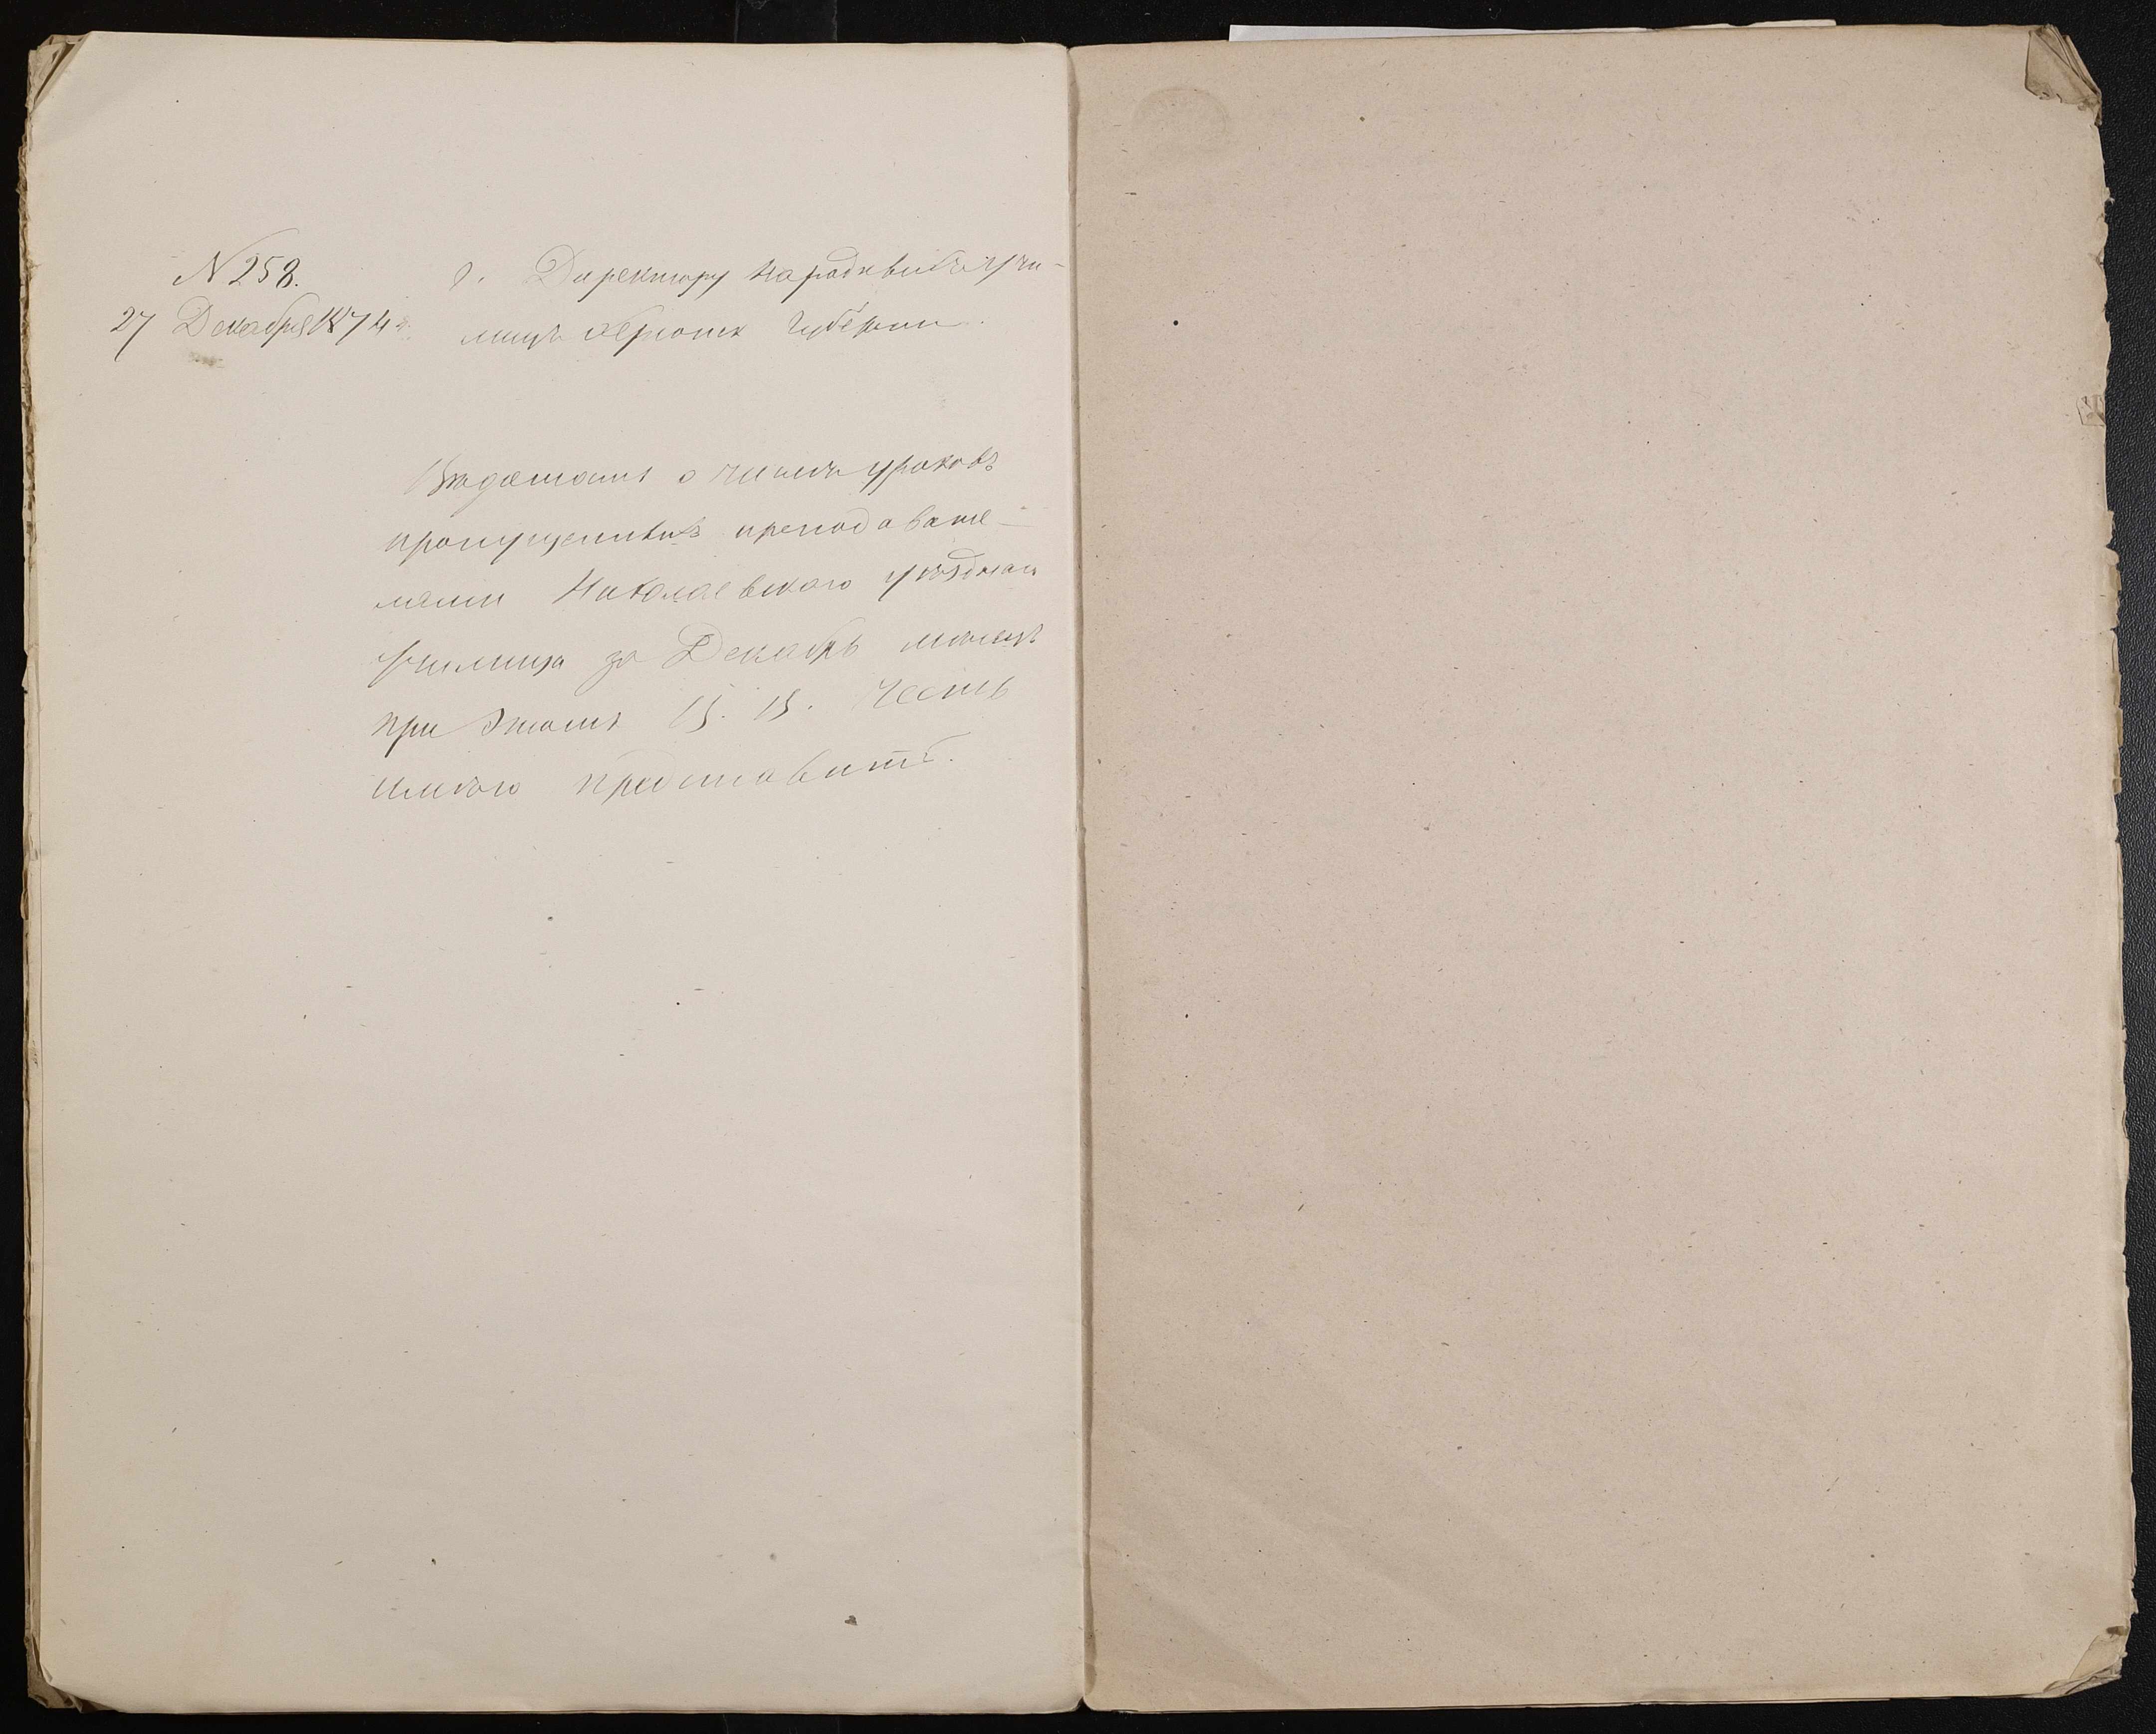 N 258.
27 Декабря 1874 г.
г. Директору народныхъ учи-
лищъ Херсонск Губерніи.
Вѣдомость о числѣ уроковъ
пропущенныхъ преподавате-
лями Николаевскаго уѣзднаго
училища за Декабрь мѣсяцъ
при этомъ В. В. честь
имѣю представить.